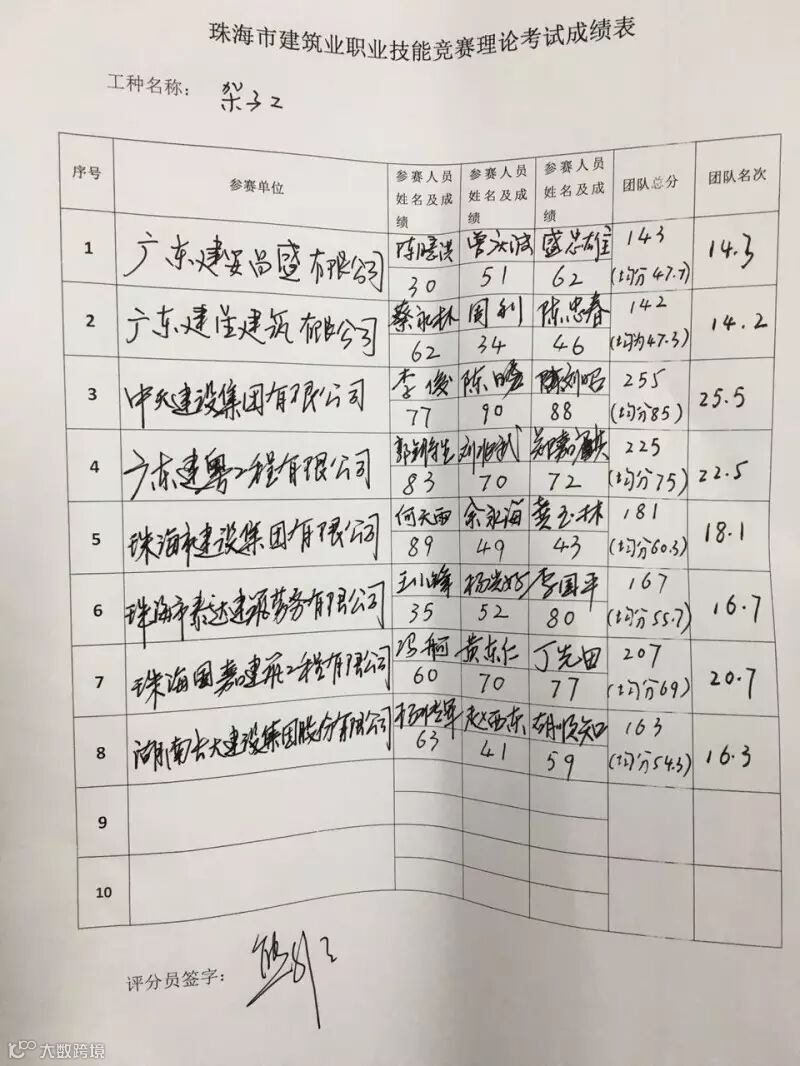 珠海市建筑业职业技能竞赛理论考试成绩表
工种名称： 架子工
序号 参赛单位 参赛人员姓名及成绩 参赛人员姓名及成绩 参赛人员姓名及成绩 团队总分 团队名次
1 广东建安昌盛有限公司 陈 洪 曾 波 盛忠雄 143 14.3
30 51 62 (均分47.7)
2 广东建星建筑有限公司 蔡永林 周利 陈忠春 142 14.2
62 34 46 (均分47.3)
3 中天建设集团有限公司 李俊 陈 刘昭 255 25.5
77 90 88 (均分85)
4 广东建粤工程有限公司 225 22.5
83 70 72 (均分75)
5 珠海市建设集团有限公司 何天雨 余永海 黄玉林 181 18.1
89 49 43 (均分60.3)
6 珠海市泰达建筑劳务有限公司 王小峰 李国平 167 16.7
35 52 80 (均分55.7)
7 珠海国嘉建筑工程有限公司 冯舸 黄东仁 丁先田 207 20.7
60 70 77 (均分69)
8 湖南长大建设集团股份有限公司 赵西东 胡顺知 163 16.3
63 41 59 (均分54.3)
9
10
评分员签字：
大数跨境